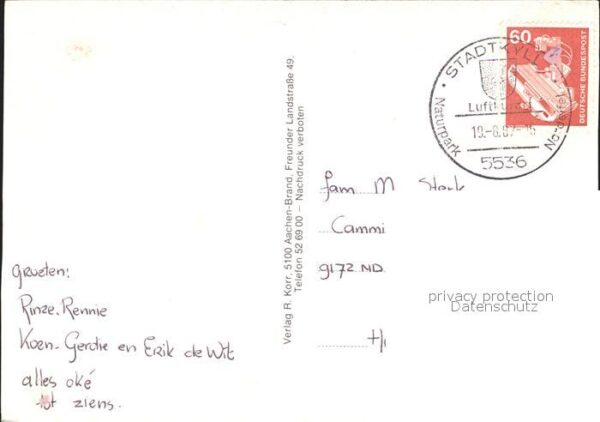 60
DEUTSCHE BUNDESPOST
STADTKYLL
Luftkurort
19.-8.87-15
Naturpark
Nordeifel
5536
Verlag R. Korr, 5100 Aachen-Brand, Freunder Landstraße 49,
Telefon 52 69 00 – Nachdruck verboten
fam M Stork
Cammi
9172 ND
privacy protection
Datenschutz
Groeten:
Rinze. Rennie
Koen - Gerdie en Erik de Wit
alles oké
tot ziens.